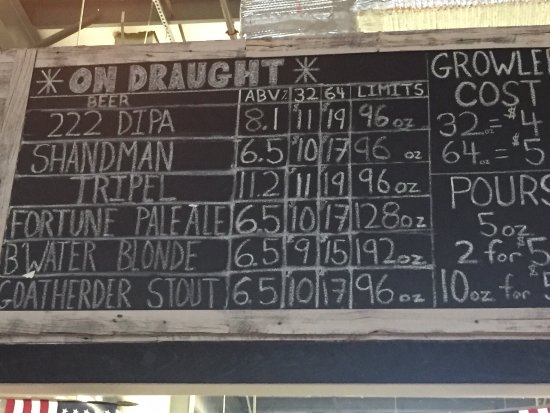 * ON DRAUGHT *
BEER ABV% 32 64 LIMITS
222 DIPA 8.1 $11 $19 96 oz
SHANDMAN 6.5 $10 $17 96 oz
TRIPEL 11.2 $11 $19 96 oz
FORTUNE PALE ALE 6.5 $10 $17 128 oz
B'WATER BLONDE 6.5 $9 $15 192 oz
GOATHERDER STOUT 6.5 $10 $17 96 oz
GROWLER
COST
32 oz = $4
64 oz = $5
POURS
5 oz
2 for $5
10 oz for